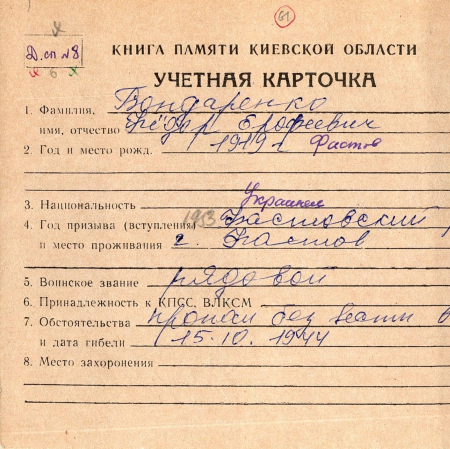 61
Д.сп №8
6
КНИГА ПАМЯТИ КИЕВСКОЙ ОБЛАСТИ
УЧЕТНАЯ КАРТОЧКА
1. Фамилия, Бондаренко
имя, отчество Фёдор Ерофеевич
2. Год и место рожд. 1919 г Фастов
3. Национальность Украинец
4. Год призыва (вступления) Фастовский р
и место проживания г. Фастов
5. Воинское звание рядовой
6. Принадлежность к КПСС, ВЛКСМ
7. Обстоятельства пропал без вести в
и дата гибели 15.10.1944
8. Место захоронения